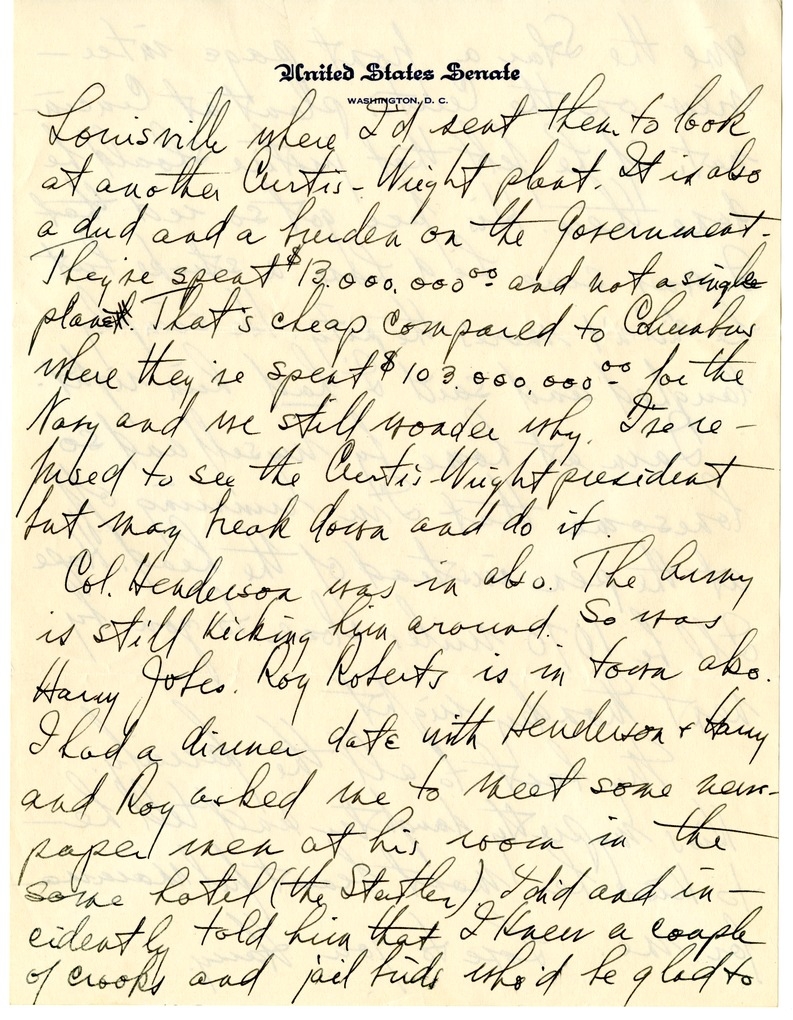 United States Senate
WASHINGTON, D. C.
Louisville where I'd sent them to look
at another Curtis-Wright plant. It is also
a dud and a burden on the Government.
They've spent $13,000,000.00 and not a single
plane. That's cheap compared to Columbus
where they've spent $103,000,000.00 for the
Navy and we still wonder why. I've re-
fused to see the Curtis-Wright president
but may break down and do it.
Col. Henderson was in also. The Army
is still kicking him around. So was
Harry Jobes. Roy Roberts is in town also.
I had a dinner date with Henderson & Harry
and Roy asked me to meet some news-
paper men at his room in the
same hotel (the Statler) I did and in-
cidently told him that I knew a couple
of crooks and jail birds who'd be glad to